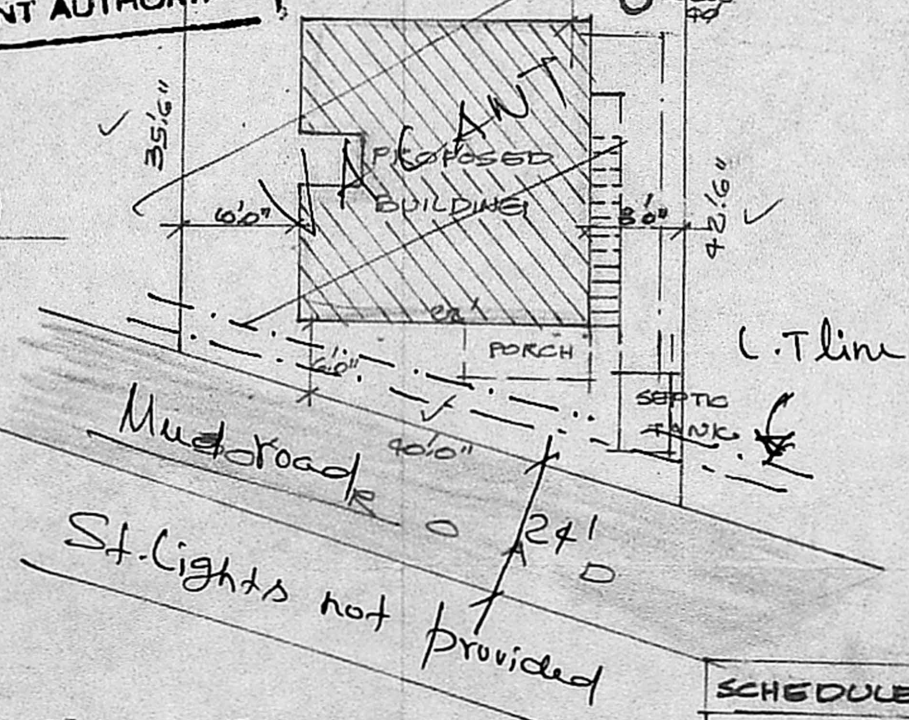 NT AUTHORI
35'6"
VACANT
PROPOSED
BUILDING
6'0"
3'0"
42'6"
22'
PORCH
6'0"
L.T line
SEPTIC
TANK
40'0"
Mud road
R O A D
24'
St. Lights not provided
SCHEDULE